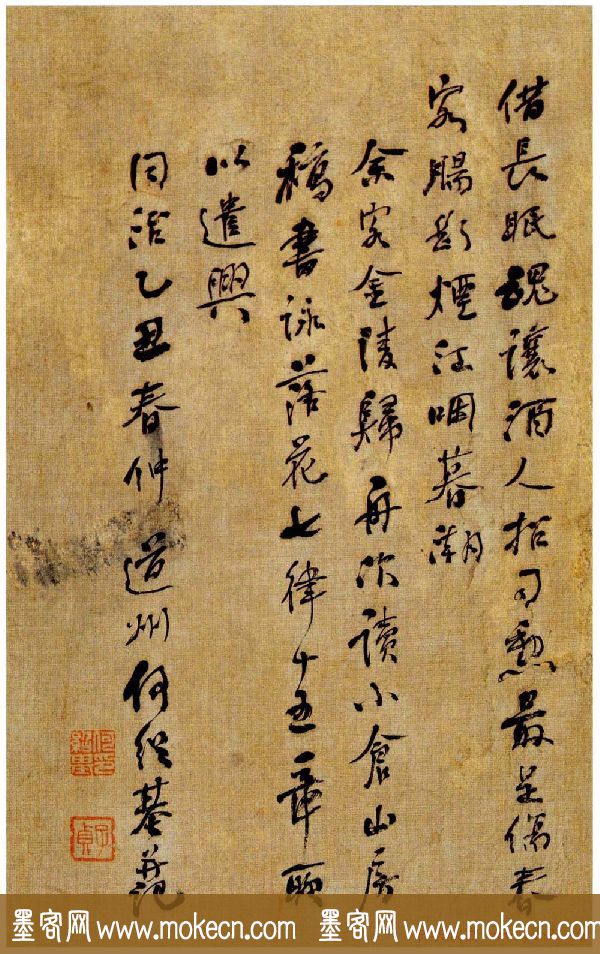 借長眠魂讓酒人招司勳最是傷春
客腸斷煙江咽暮潮
余客金陵歸舟次讀小倉山房
稿書詠落花七律十五章聊
以遣興
同治乙丑春仲道州何紹基并記
墨客网 www.mokecn.com 墨客网 www.mokecn.com